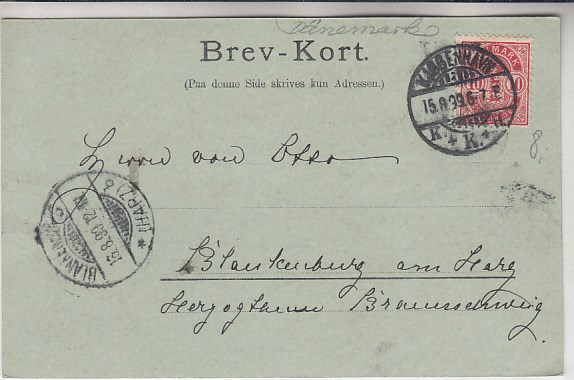 Dänemark
Brev-Kort.
(Paa denne Side skrives kun Adressen.)
DANMARK
10 10
KJØBENHAVN
15.8.99.6-7 E
K. K.
8.
Herrn von Otto
BLANKENBURG
16.8.99.12-1N
(HARZ) b
Blankenburg am Harz
Herzogthum Braunschweig